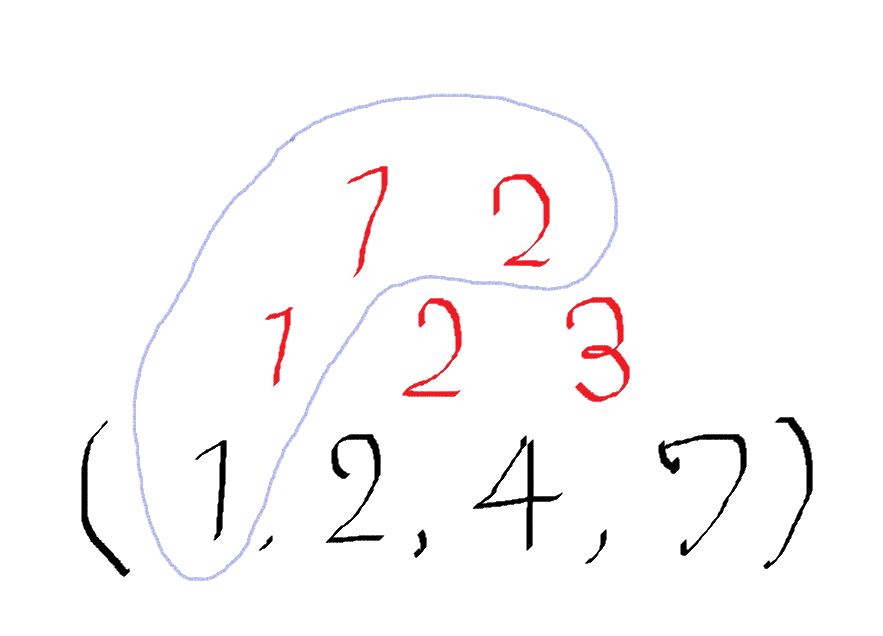 1 2
1 2 3
(1, 2, 4, 7)